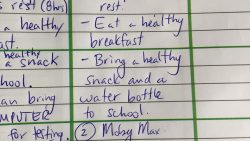 s rest (8hrs)
a healthy
ast.
healthy
a snack
hool.
an bring
for testing.
rest.
- Eat a healthy
breakfast
- Bring a healthy
snack and a
water bottle
to school.
② Moby Max